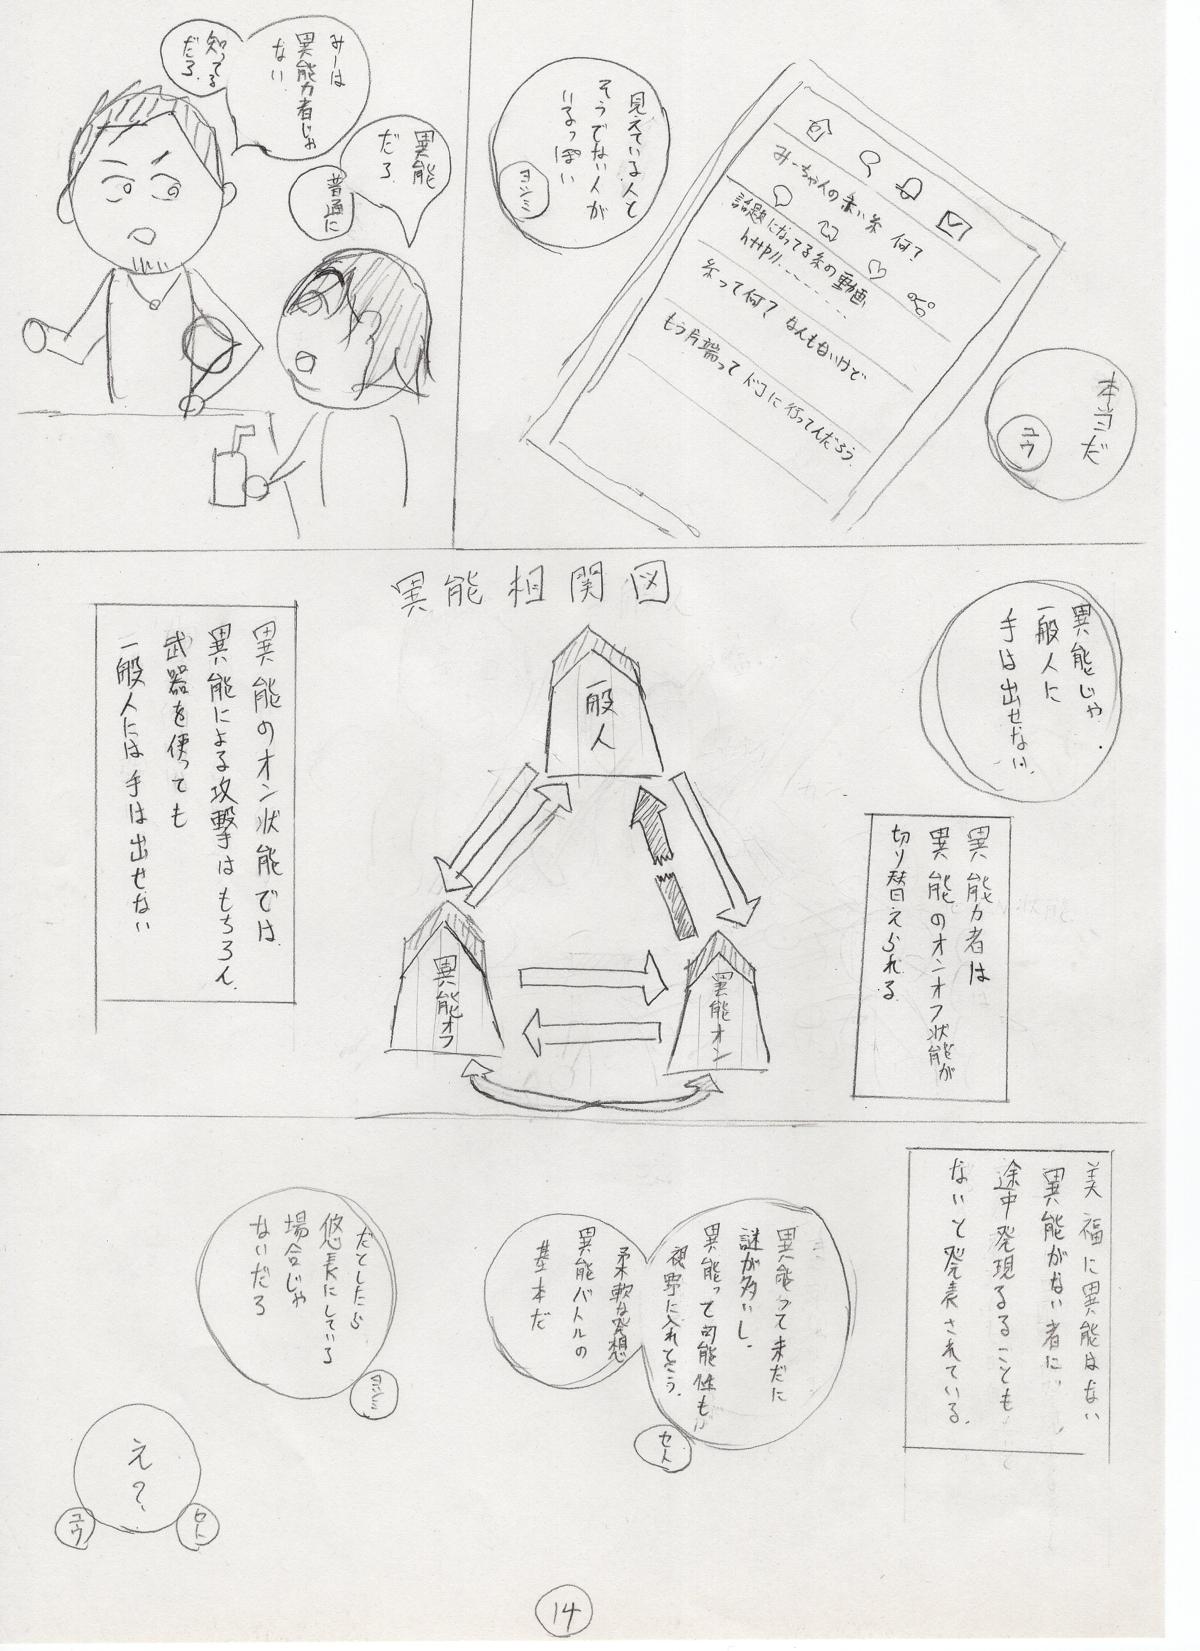 見えている人と
そうでない人が
いるっぽい
ヨシミ
みーちゃんの赤い糸 何?
話題になってる糸の動画
http//........
糸って何? なんもないけど
もう片端って ドコに行ってんだろう.
本当だ
ユウ
異能
だろ
普通に
みーは
異能力者じゃ
ない
知ってる
だろ.
異能じゃ
一般人に
手は出せない.
異能力者は
異能のオンオフ状態が
切り替えられる
異能相関図
一般人
異能オフ
異能オン
異能のオン状態では
異能による攻撃はもちろん
武器を使っても
一般人には手は出せない
美福に異能はない
異能がない者に
途中発現るることも
ないと発表されている.
異能って未だに
謎が多いし.
異能って可能性も
視野に入れとこう.
柔軟な発想
異能バトルの
基本だ
セト
だとしたら
悠長にしている
場合じゃ
ないだろ
ヨシミ
え?
セト
ユウ
14